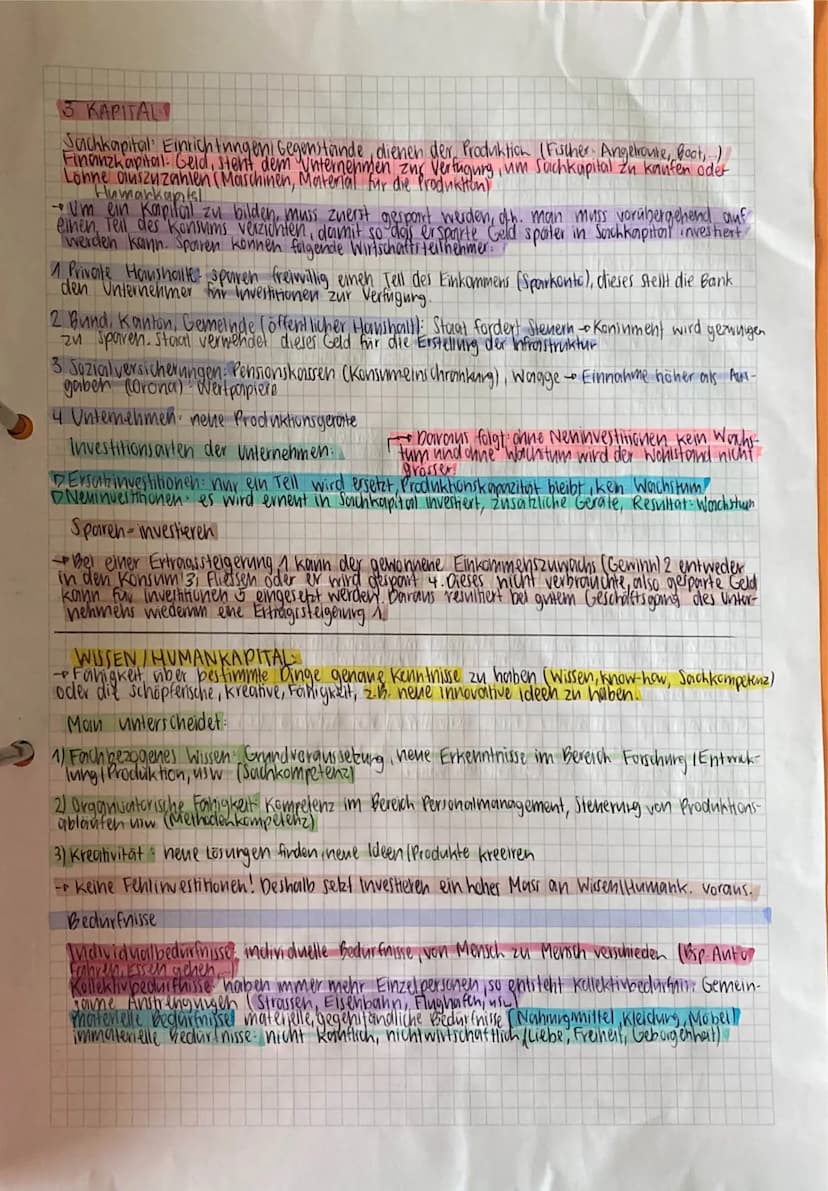 3 KAPITAL
Sachkapital: Einrichtungen/Gegenstände, dienen der Produktion (Fischer: Angelroute, Boot,..)
Finanzkapital: Geld, steht dem Unternehmen zur Verfügung, um Sachkapital zu kaufen oder
Löhne auszuzahlen (Maschinen, Material für die Produktion)
Humankapital
→ Um ein Kapital zu bilden, muss zuerst gespart werden, d.h. man muss vorübergehend auf
einen Teil des Konsums verzichten, damit so das ersparte Geld später in Sachkapital investiert
werden kann. Sparen können folgende Wirtschaftsteilnehmer:
1 Private Haushalte: sparen freiwillig einen Teil des Einkommens (Sparkonto), dieses stellt die Bank
den Unternehmer für Investitionen zur Verfügung.
2 Bund, Kanton, Gemeinde (öffentlicher Haushalt): Staat fordert Steuern → wird gezwungen
zu sparen. Staat verwendet dieses Geld für die Erstellung der Infrastruktur
3 Sozialversicherungen: Pensionskassen (Konsumeinschränkung), → Einnahme höher als Aus-
gaben (Corona): Wertpapiere
4 Unternehmen: neue Produktionsgeräte
Investitionsarten der Unternehmen:
→ Daraus folgt: ohne Neninvestitionen kein Wachs-
tum und ohne Wachstum wird der Wohlstand nicht
grösser
▷ Ersatzinvestitionen: nur ein Teil wird ersetzt, Produktionskapazität bleibt, kein Wachstum
▷ Neuinvestitionen: es wird erneut in Sachkapital investiert, zusätzliche Geräte, Resultat=Wachstum
Sparen = investieren
→ Bei einer Ertragssteigerung 1 kann der gewonnene Einkommenszuwachs (Gewinn) 2 entweder
in den Konsum 3 fliessen oder er wird gespart 4. Dieses nicht verbrauchte, also gesparte Geld
kann für Investitionen 5 eingesetzt werden. Daraus resultiert bei gutem Geschäftsgang des Unter-
nehmens wiederum eine Ertragssteigerung 1.
WISSEN/HUMANKAPITAL:
→ Fähigkeit über bestimmte Dinge genaue Kenntnisse zu haben (Wissen, Know-how, Sachkompetenz)
oder die schöpferische, kreative, Fähigkeit, z.B. neue innovative Ideen zu haben.
Man unterscheidet:
1) Fachbezogenes Wissen: Grundvoraussetzung, neue Erkenntnisse im Bereich Forschung/Entwick-
lung/Produktion, usw (Sachkompetenz)
2) Organisatorische Fähigkeit: Kompetenz im Bereich Personalmanagement, Steuerung von Produktions-
abläufen usw (Methodenkompetenz)
3) Kreativität: neue Lösungen finden, neue Ideen/Produkte kreeiren
→ Keine Fehlinvestitionen! Deshalb setzt Investieren ein hohes Mass an Wissen/Humank. voraus.
Bedürfnisse
Individualbedürfnisse: individuelle Bedürfnisse, von Mensch zu Mensch verschieden (Bsp. Auto
fahren, Essen gehen...)
Kollektivbedürfnisse: haben immer mehr Einzelpersonen, so entsteht Kollektivbedürfnis: Gemein-
same Anstrengungen (Strassen, Eisenbahn, Flughafen, usw)
materielle Bedürfnisse: materielle, gegenständliche Bedürfnisse (Nahrungmittel, Kleidung, Möbel)
immaterielle Bedürfnisse: nicht käuflich, nicht wirtschaftlich (Liebe, Freiheit, Geborgenheit)